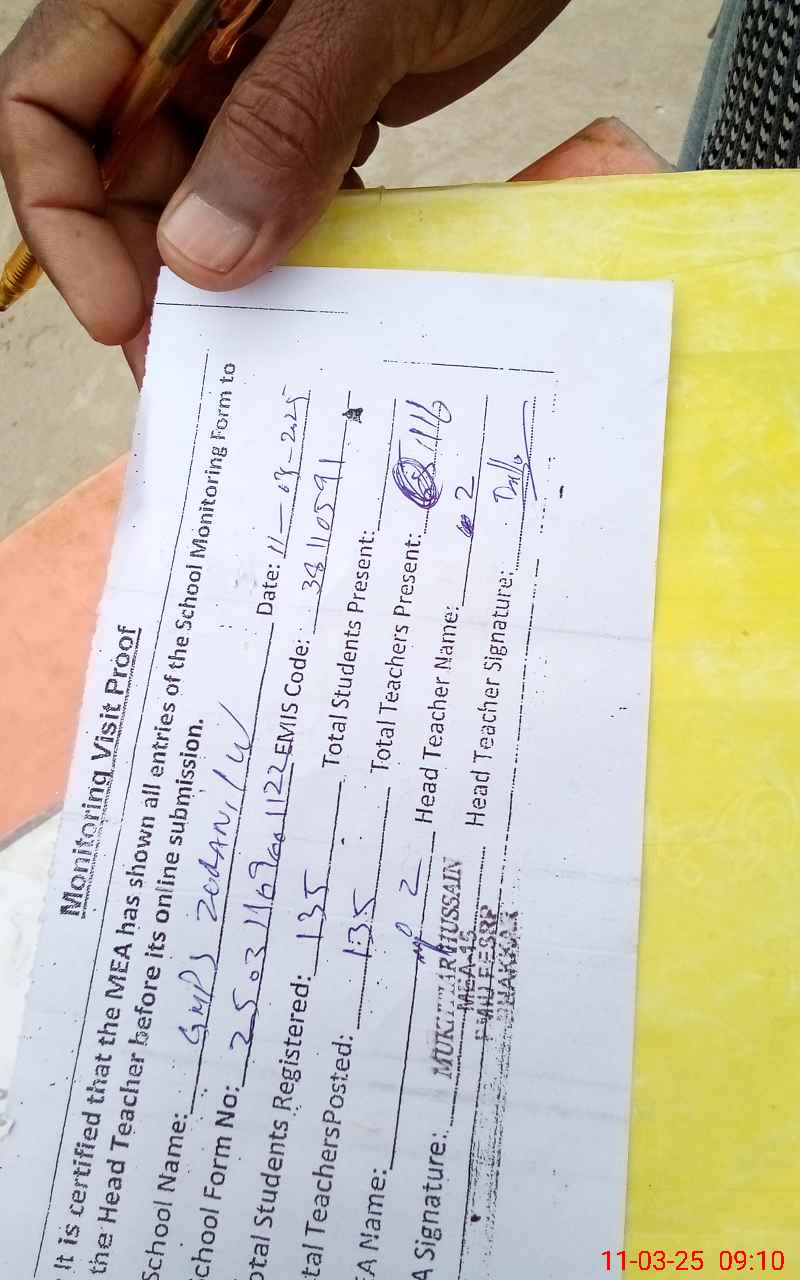 Monitoring Visit Proof
It is certified that the MEA has shown all entries of the School Monitoring Form to
the Head Teacher before its online submission.
School Name: GMPS Date: 11-03-2025
chool Form No: EMIS Code: 38110591
otal Students Registered: 135 Total Students Present:
tal TeachersPosted: 135 Total Teachers Present: 116
EA Name: 2 Head Teacher Name: 2
A Signature: MUKHTIAR HUSSAIN Head Teacher Signature:
MEA-15
11-03-25 09:10